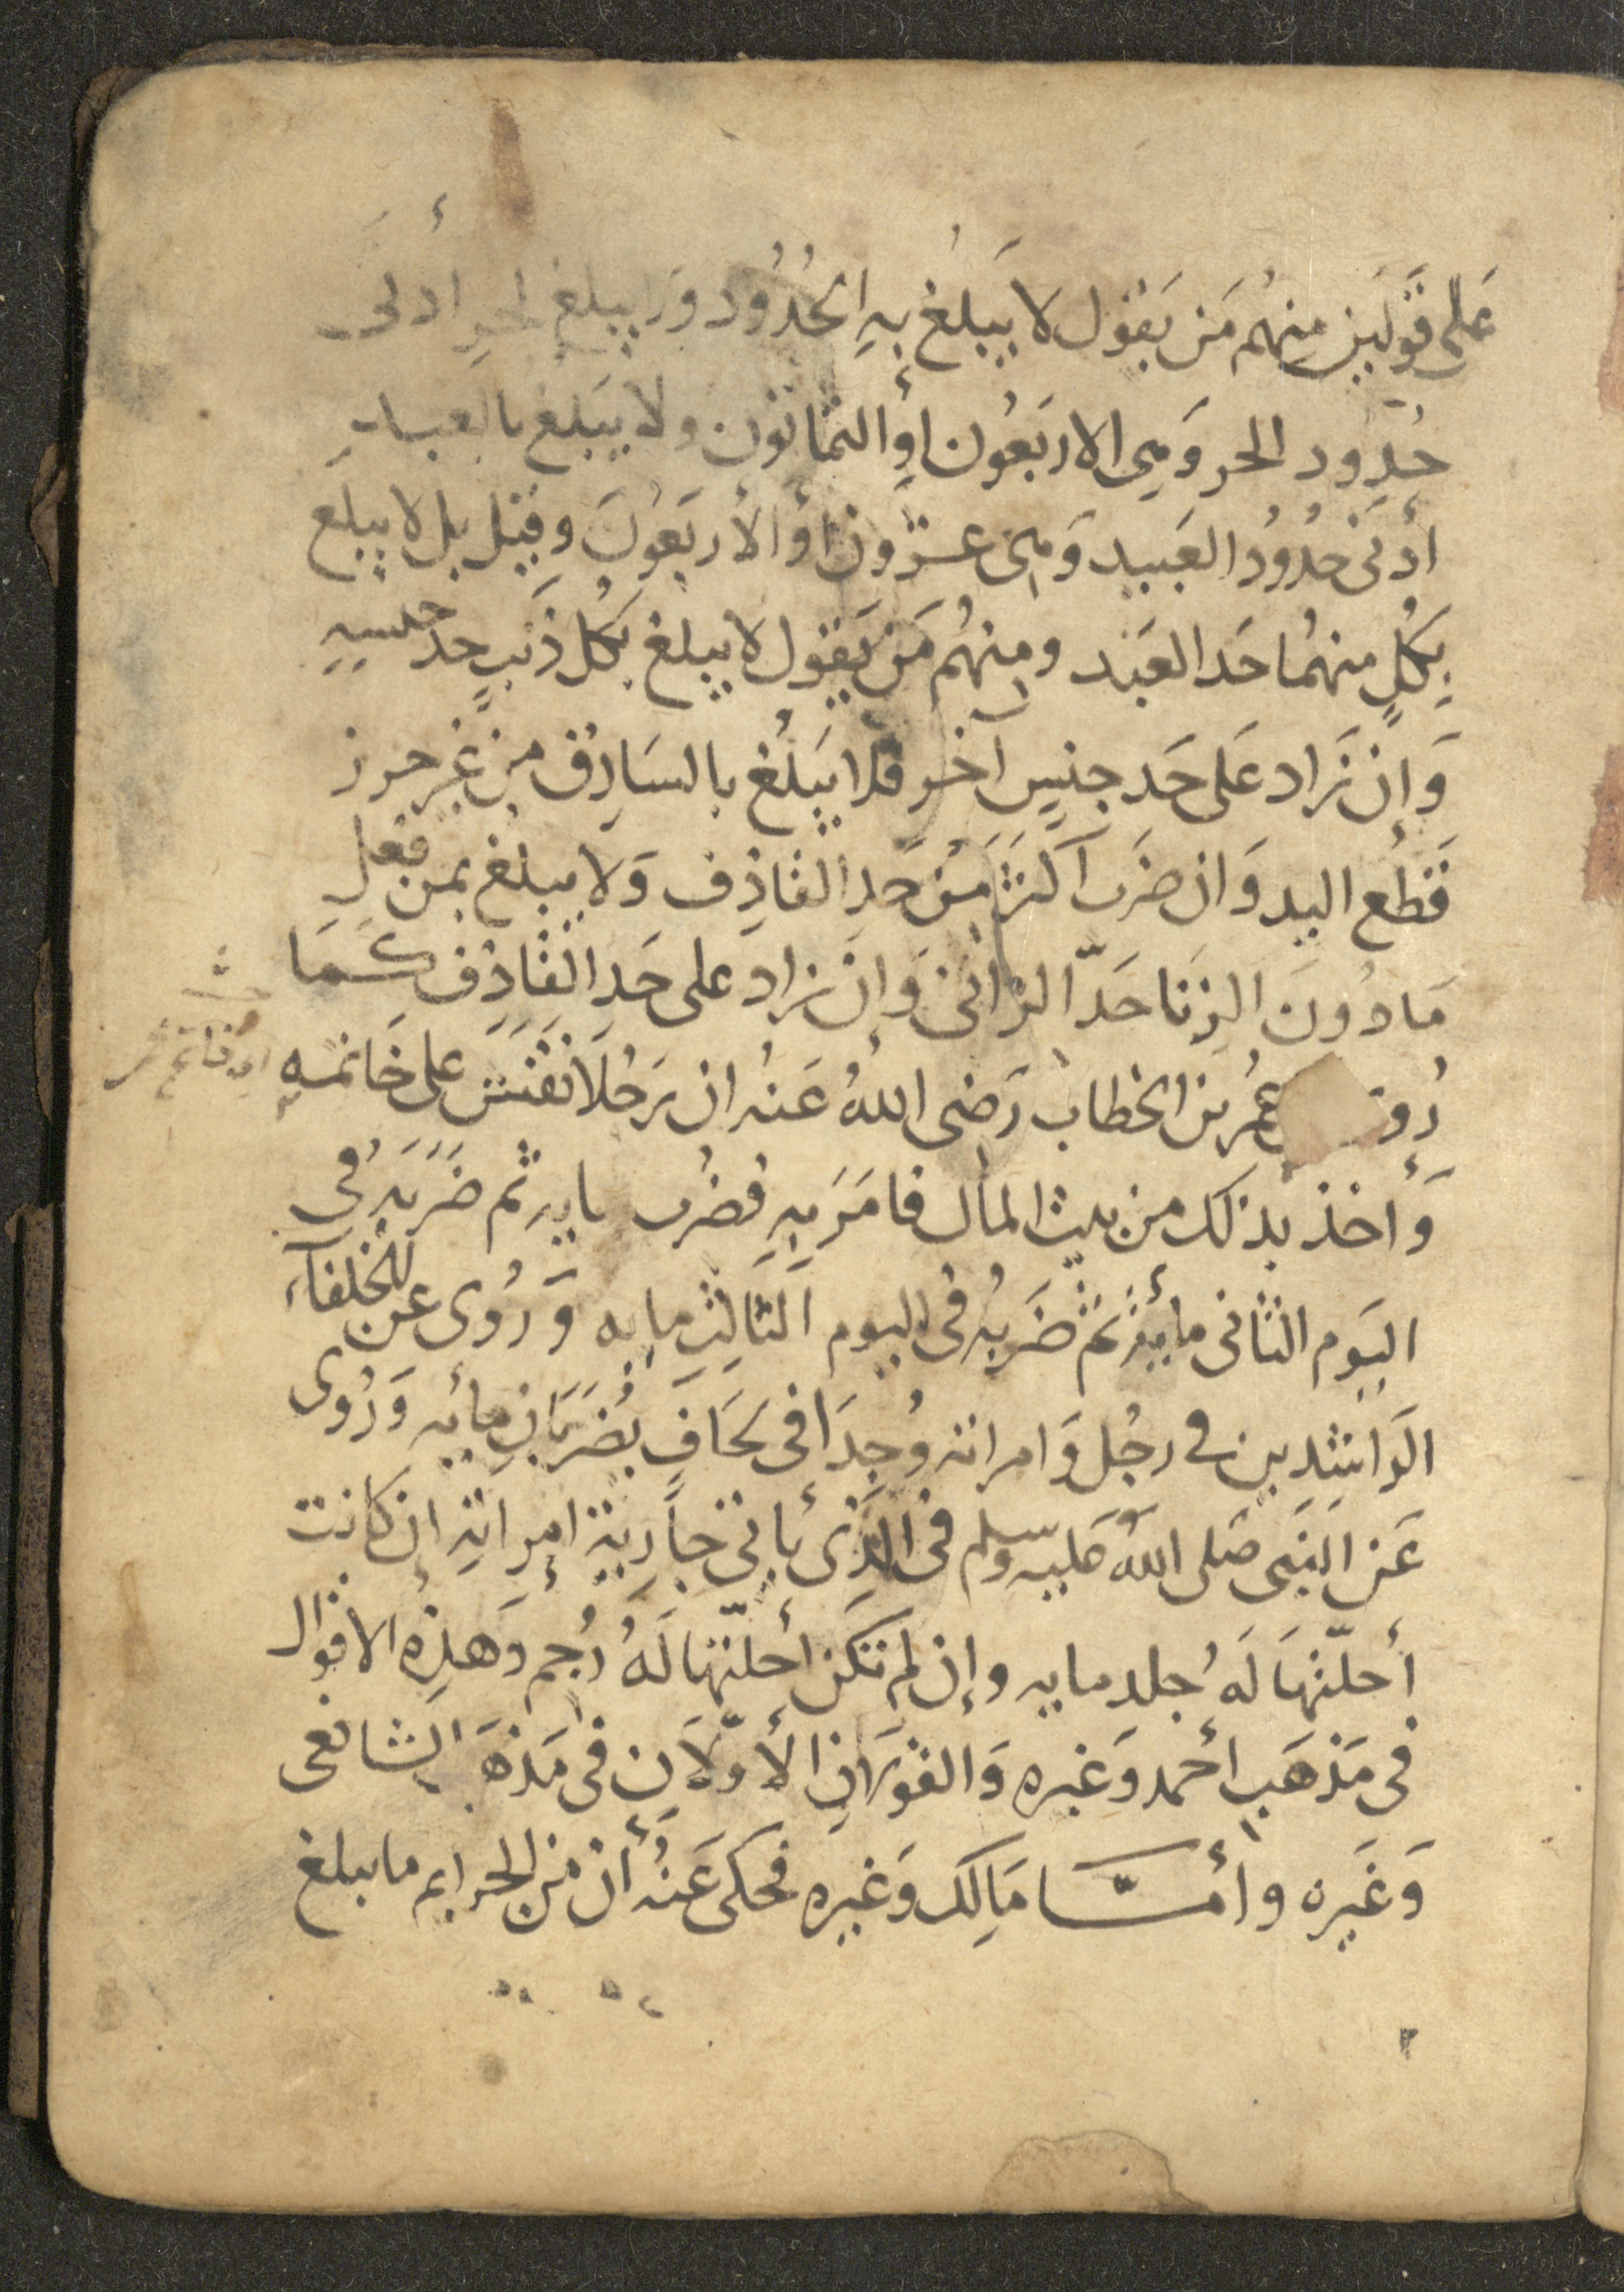 عَلى قَولَين مِنهُم مَن يَقول لا يَبلُغ بِهِ الحُدُود وَلا يبلغ لحرِ أدنى
حُدود الحر وَهى الاربَعُون اوِ الثمانون ولا يَبلغ بالعبدِ
ادنَى حُدُودُ العَبيد وَهى عشرُون أوِ الأربَعُونَ وقيل بل لا يبلغ
بِكُلٍ منهُما حَد العَبد ومِنهُم مَن يَقول لا يبلغ بكل ذَنبٍ حد جنسهِ
وَإن زَاد عَلى حَد جِنسٍ آخر فلا يَبلُغ بالسَارق مِن غير حرز
قَطْعَ اليد وَان ضَرب اكثر مِن حَدِ القَاذِف وَلا يبلغ بمن فعل
مَا دُونَ الزِنا حَدّ الزانى وَإن زاد على حَد القَاذِف كمَا
رُوى عُمر بن الخطاب رَضى اللهُ عَنهُ ان رَجُلاً نَقَشَ على خَاتمهِ
وَأخذ بذلك من بيت المال فامَرَ بهِ فضُرب مايه ثم ضَرَبَهُ فى
اليَوم الثانى مأيه ثمَّ ضَرَبهُ فى اليوم الثالِث مايه وَرُوى عن الخلفآء
الرَاشِدِين في رجُل وَامراه وُجِدَا فى لحَافٍ يُضرَبَانِ مايه وَرُوى
عَن النَبَى صَلى اللهُ عَليه وسلم فى الذى يأتى جَارِية امرَاتِهِ إن كانت
أحلّتهَا لَهُ جلد مايه وإن لم تكن أحلّتها لَهُ رُجم وَهذِهِ الاقوال
فى مَذهَبِ أحمد وَغيره وَالقَولانِ الأوّلان فى مَذهَب الشافعى
وَغَيره وأمّا مَالِك وَغيره فحكى عَنهُ أن مِن الجرايم ما يبلغ